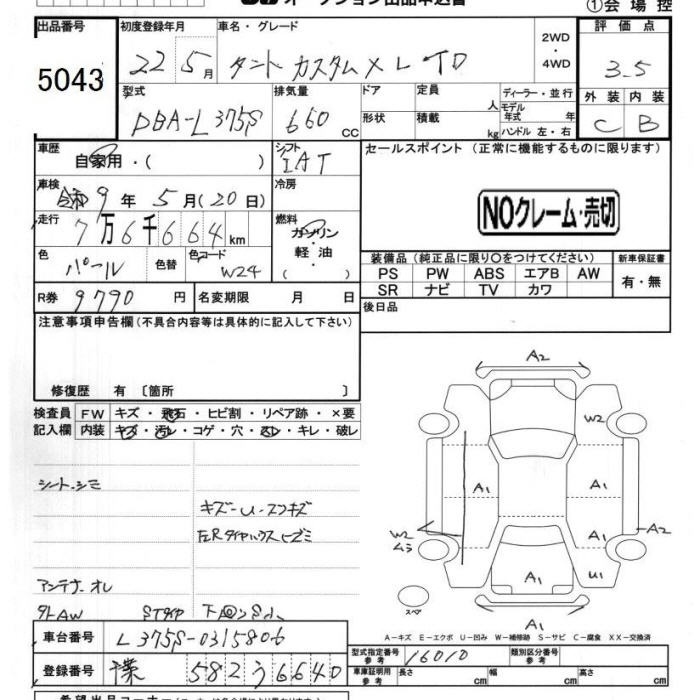 オークション出品申込書
①会場控
出品番号 5043
初度登録年月 22 5月
車名・グレード タント カスタムX L TD
2WD・4WD
評価点 3.5
外装 C 内装 B
型式 DBA-L375S
排気量 660 cc
ドア 形状
定員 人
積載 kg
ディーラー・並行
モデル年式 年
ハンドル 左・右
車歴 自家用・( )
シフト IAT
セールスポイント (正常に機能するものに限ります)
NOクレーム・売切
車検 令和9年5月(20日)
冷房
走行 7万6千664km
燃料 ガソリン・軽油・( )
色 パール 色替 色コード W24
装備品 (純正品に限り〇をつけてください)
PS PW ABS エアB AW
SR ナビ TV カワ
新車保証書 有・無
R券 9790円
名変期限 月 日
後日品
注意事項申告欄(不具合内容等は具体的に記入して下さい)
修復歴 有〔箇所 〕
検査員記入欄
FW キズ・飛石・ヒビ割・リペア跡・×要
内装 キズ・汚レ・コゲ・穴・スレ・キレ・破レ
シートシミ
キズ-U-スリキズ
左Rタイヤハウスヒズミ
アンテナオレ
外AW STタイヤ 下回りS小
A2
W2
A1 A1 A1
W2 ムラ
A2
A1 U1
スペア
A1
A-キズ E-エクボ U-凹み W-補修跡 S-サビ C-腐食 XX-交換済
車台番号 L375S-0315806
登録番号 582う6640
型式指定番号 参考 16010
類別区分番号 参考
車庫証明用 参考 長さ cm 幅 cm 高さ cm